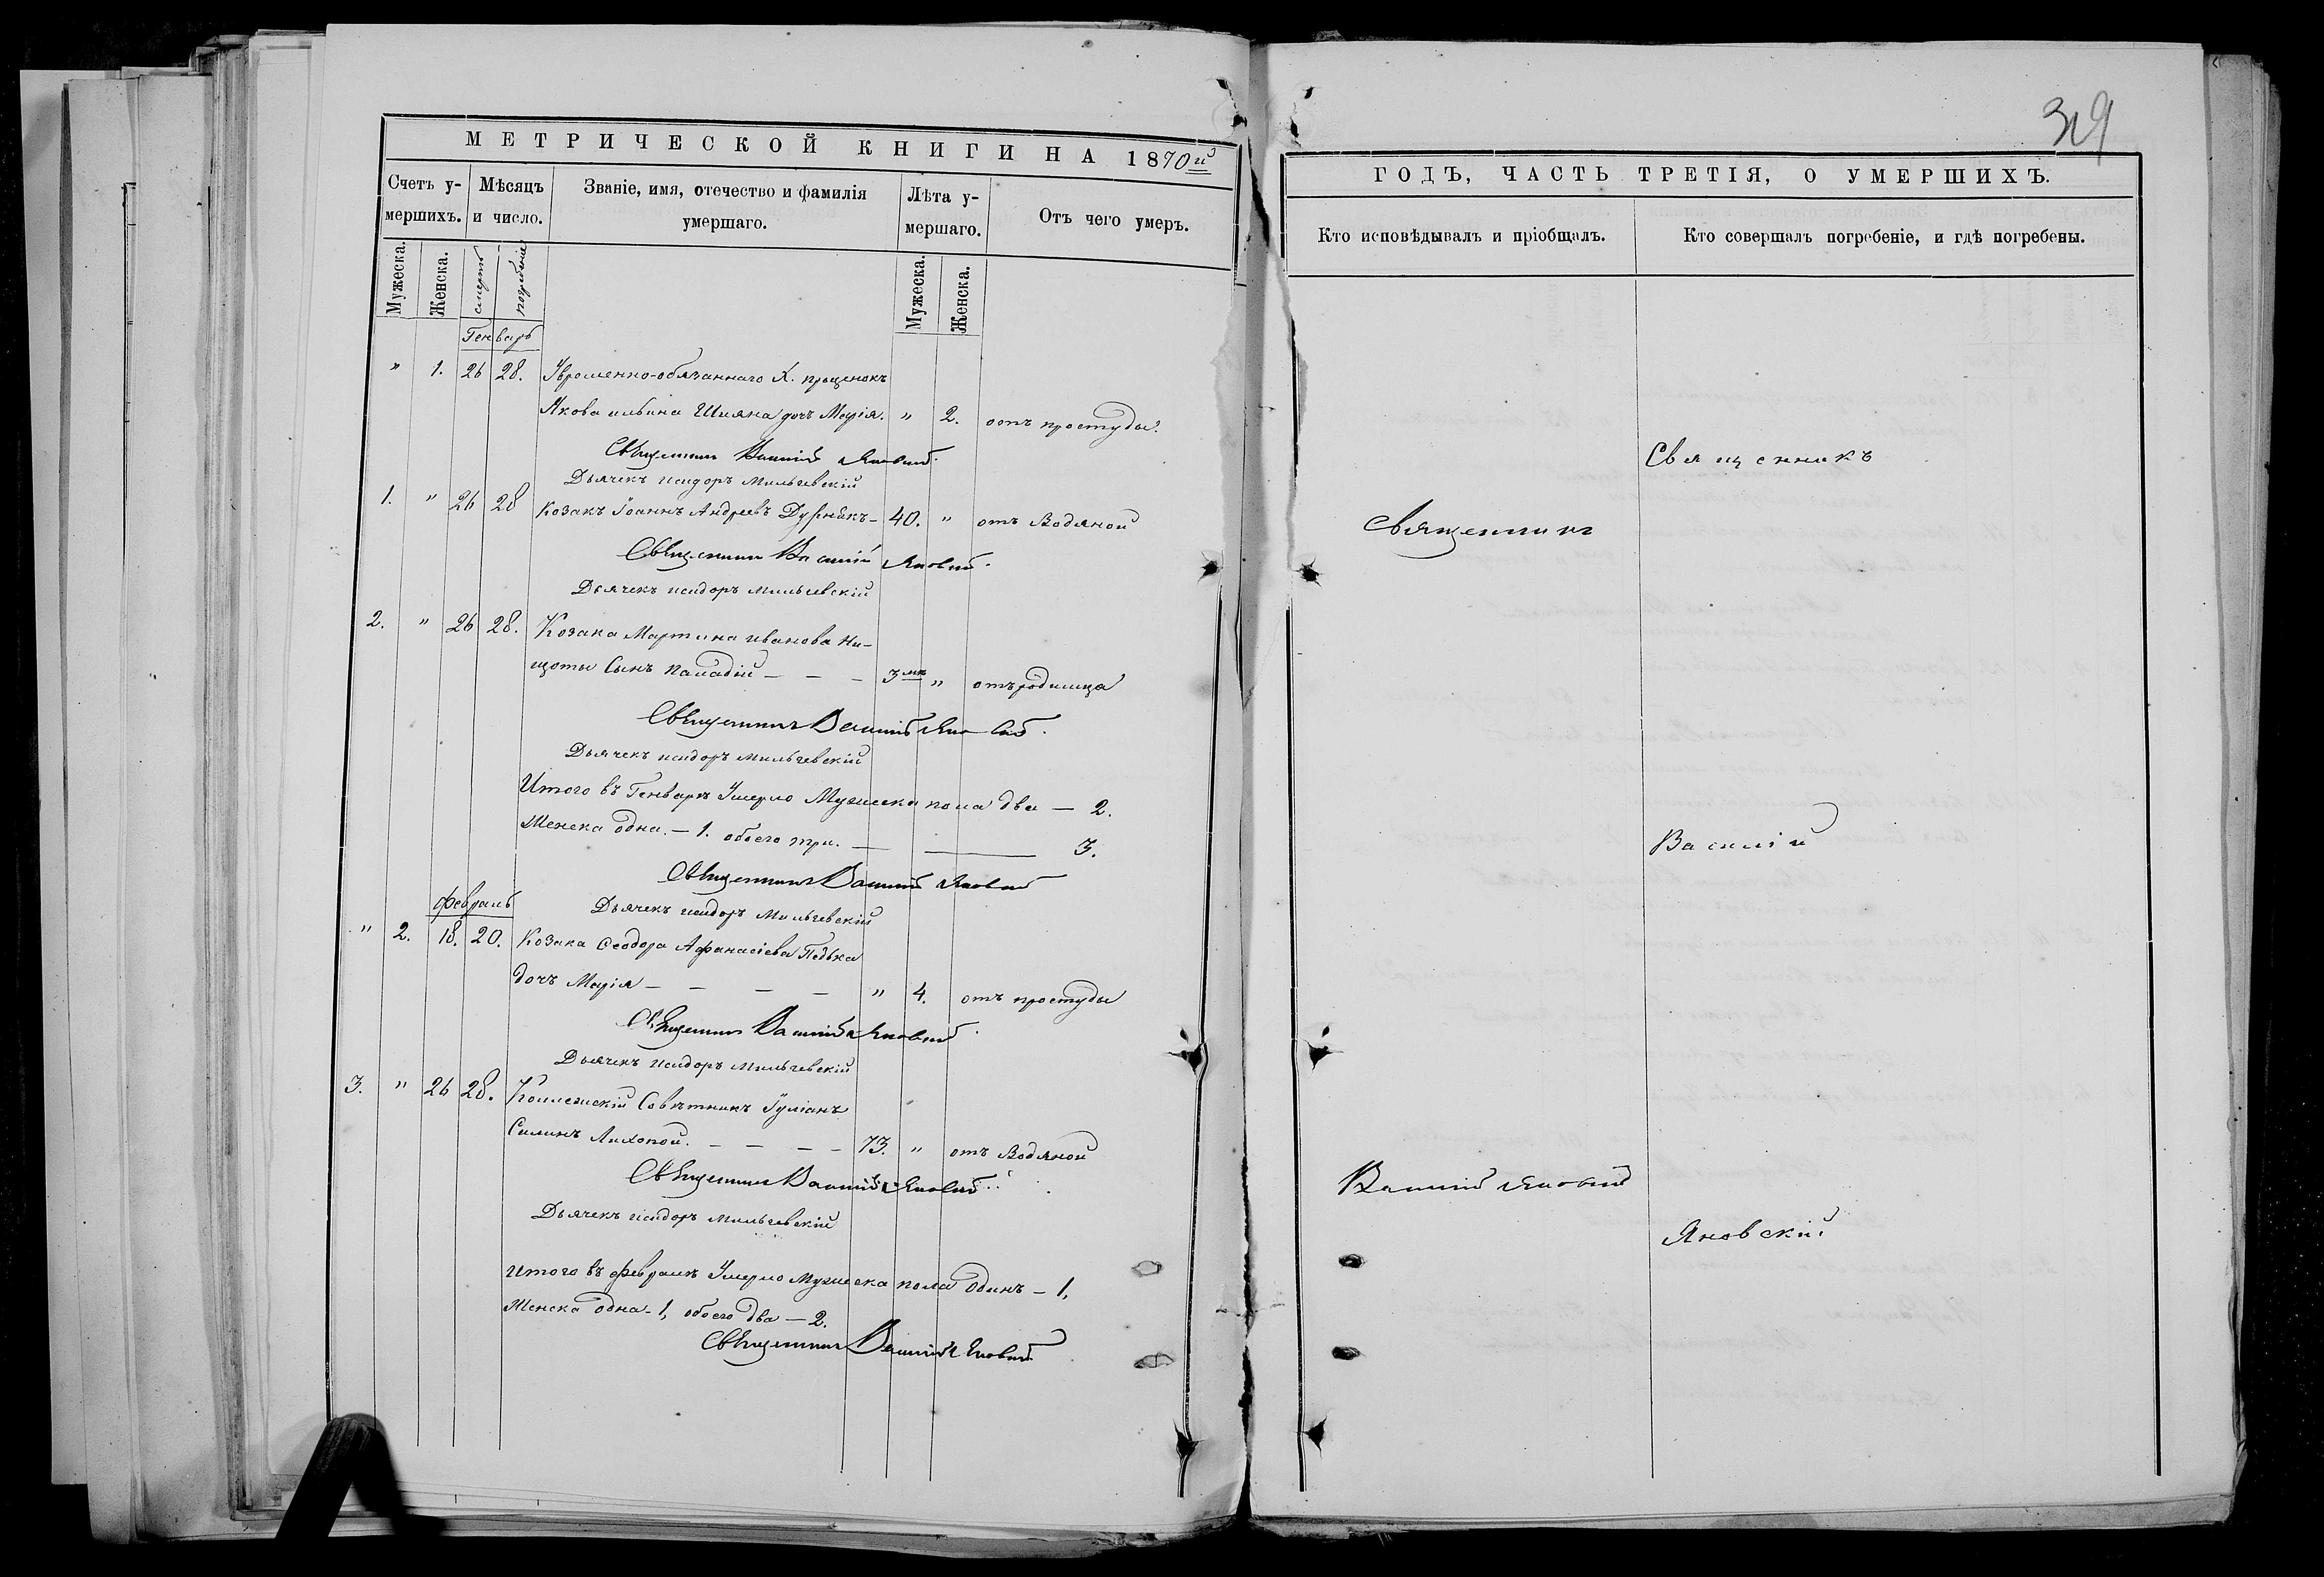 МЕТРИЧЕСКОЙ КНИГИ НА 1870й
Счетъ у-
мершихъ.
Мѣсяцъ
и число.
Званіе, имя, отечество и фамилія
умершаго.
Лѣта у-
мершаго.
Отъ чего умеръ.
Мужеска.
Женска.
смерть
погребеніе
Мужеска.
Женска.
Генварь
" 1. 26 28. Увременно-обязаннаго Х.
Якова ильина Шияна дочь Марія. " 2. отъ простуды.
Священникъ Василій Яновскій.
Дьячекъ исидоръ Мильчевскій
1. " 26 28 Козакъ Іоаннъ Андреевъ Дудникъ - 40. " отъ Водяной
Священникъ Василій Яновскій.
Дьячекъ исидоръ Мильчевскій
2. " 26 28. Козака Мартина иванова Ни-
щоты Сынъ Паладій - - - 3 мѣ " отъ родимца
Священникъ Василій Яновскій.
Дьячекъ исидоръ Мильчевскій
Итого въ Генварѣ Умерло Мужеска пола два — 2.
Женска одна. — 1. обоего три. — — 3.
Священникъ Василій Яновскій
Дьячекъ исидоръ Мильчевскій
Февраль
" 2. 18. 20. Козака Феодора Афанасіева Педька
дочь Марія - - - - " 4. отъ простуды
Священникъ Василій Яновскій.
Дьячекъ исидоръ Мильчевскій
3. " 26 28. Коллежскій Совѣтникъ Іуліанъ
Силинъ Лихопой. - - - - 73. " отъ Водяной
Священникъ Василій Яновскій.
Дьячекъ исидоръ Мильчевскій
Итого въ Февралѣ Умерло Мужеска пола Одинъ — 1,
Женска одна - 1, обоего два — 2.
Священникъ Василій Яновскій
ГОДЪ, ЧАСТЬ ТРЕТІЯ, О УМЕРШИХЪ.
Кто исповѣдывалъ и пріобщалъ.
Кто совершалъ погребеніе, и гдѣ погребены.
Священникъ
Священникъ
Василій
Василій Яновскій
Яновскій.